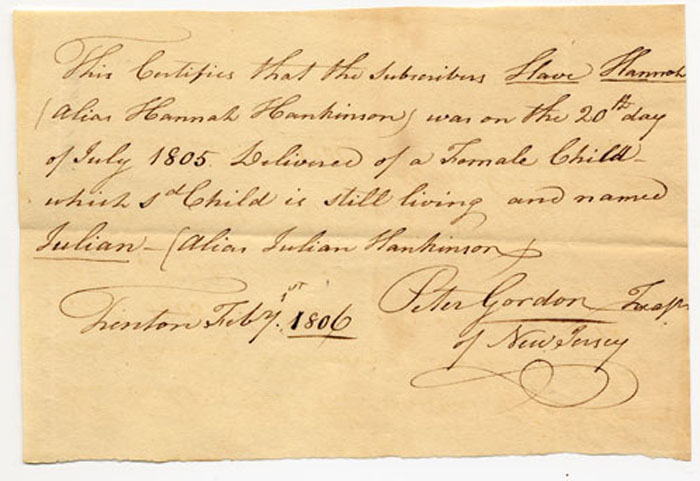 This Certifies that the Subscribers Slave Hannah
(Alias Hannah Hankinson) was on the 20th day
of July 1805. Delivered of a Female Child
which sd Child is still living and named
Julian - (Alias Julian Hankinson)
Trenton Feby. 1st 1806 Peter Gordon
of New Jersey